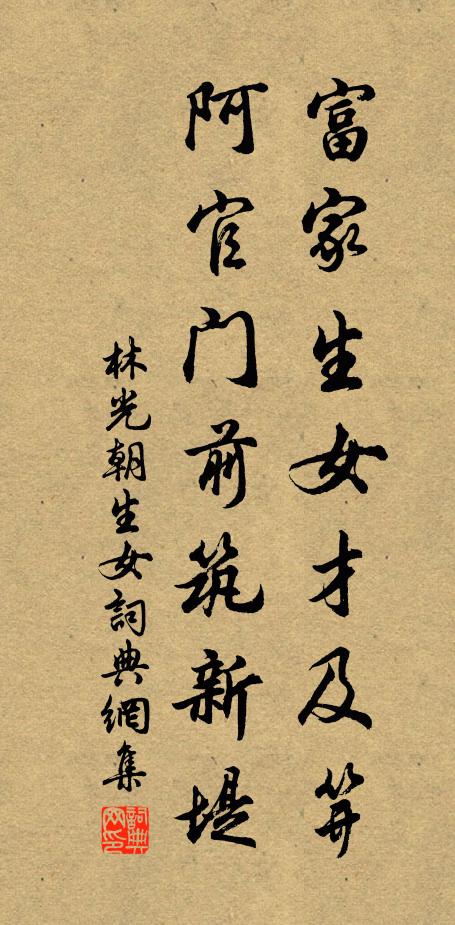 富家生女才及笄
阿官门前筑新堤
林光朝生女詞典網集
詞典網印